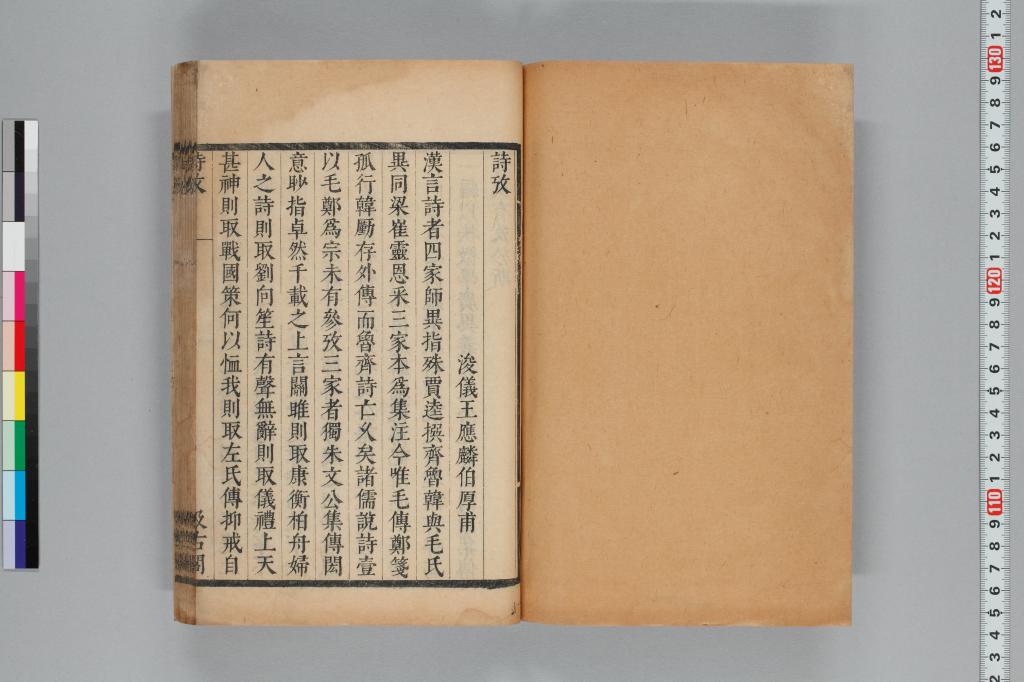 詩攷
浚儀王應麟伯厚甫
漢言詩者四家師異指殊賈逵撰齊魯韓與毛氏
異同梁崔靈恩采三家本爲集注今唯毛傳鄭箋
孤行韓厪存外傳而魯齊詩亡久矣諸儒說詩壹
以毛鄭爲宗未有參攷三家者獨朱文公集傳閎
意眇指卓然千載之上言關雎則取康衡柏舟婦
人之詩則取劉向笙詩有聲無辭則取儀禮上天
甚神則取戰國策何以恤我則取左氏傳抑戒自
詩攷
汲古閣
2
1
130
9
8
7
6
5
4
3
2
1
120
9
8
7
6
5
4
3
2
1
110
9
8
7
6
5
4
3
2